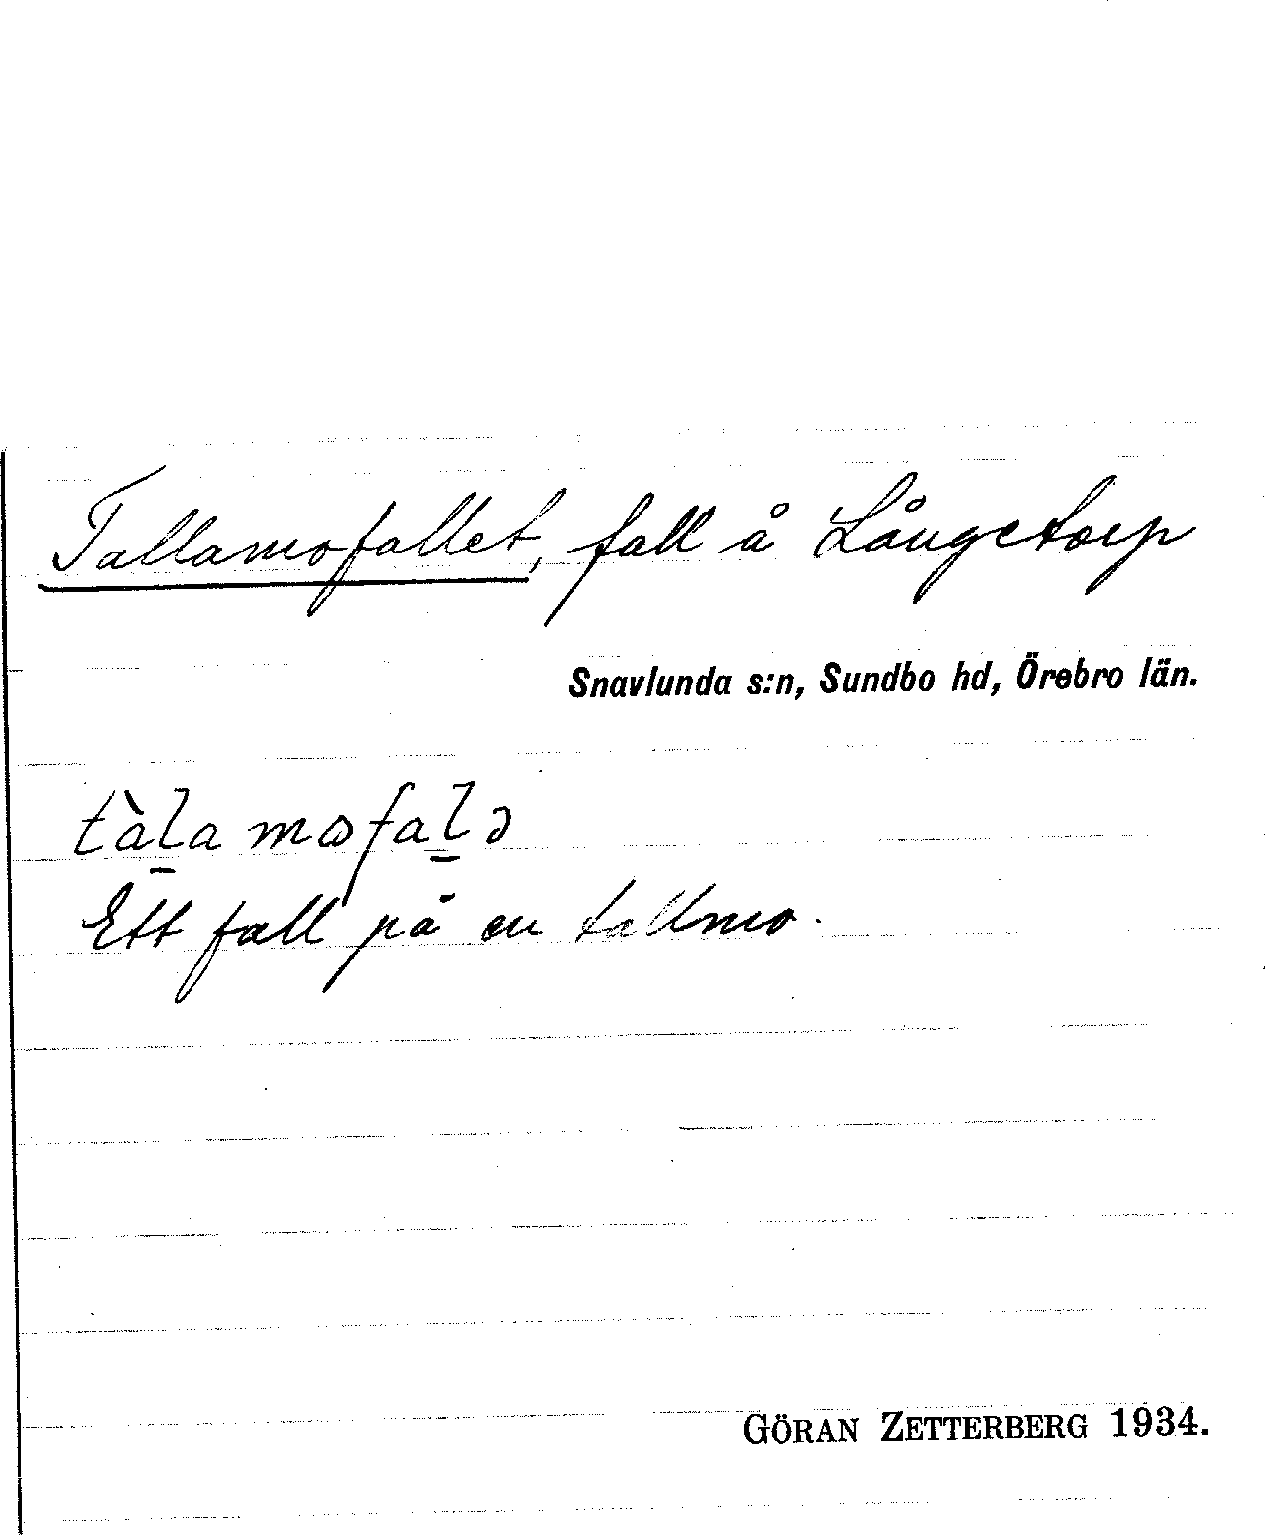 Tallamofallet, fall å Långetorp
Snavlunda s:n, Sundbo hd, Örebro län.
tàl̠a mɷfal̠ə
Ett fall på en tallmo.
GÖRAN ZETTERBERG 1934.